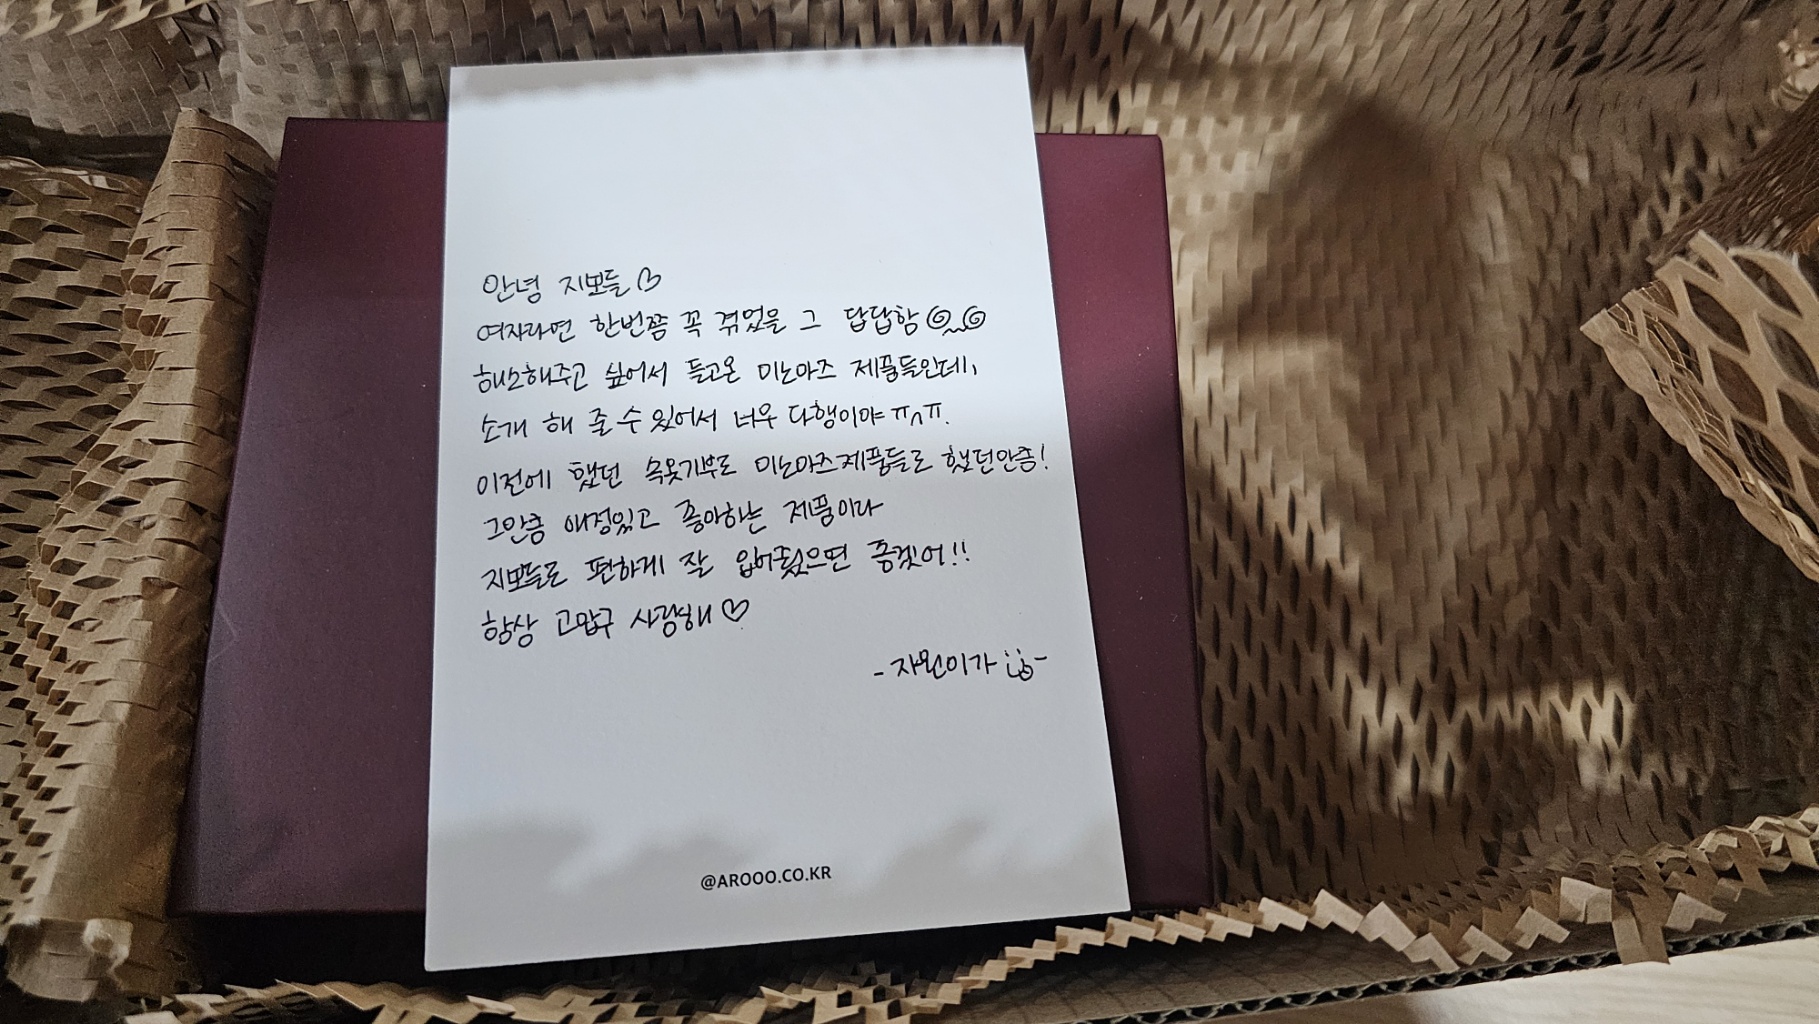 안녕 지보들♡
여자라면 한번쯤 꼭 겪었을 그 답답함
해소해주고 싶어서 들고온 미노아즈 제품들인데,
소개 해 줄 수 있어서 너무 다행이야ㅠㅅㅠ.
이전에 했던 속옷기부도 미노아즈제품들로 했던만큼!
그만큼 애정있고 좋아하는 제품이라
지보들도 편하게 잘 입어줬으면 좋겠어!!
항상 고맙구 사랑해♡
-자원이가 -
@AROOO.CO.KR